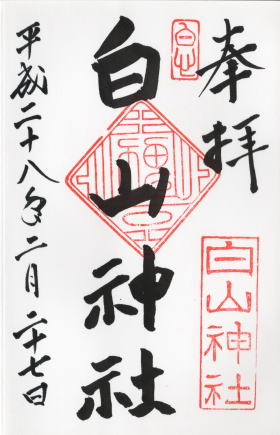 奉拝
白山神社
白山神社
平成二十八年二月二十七日